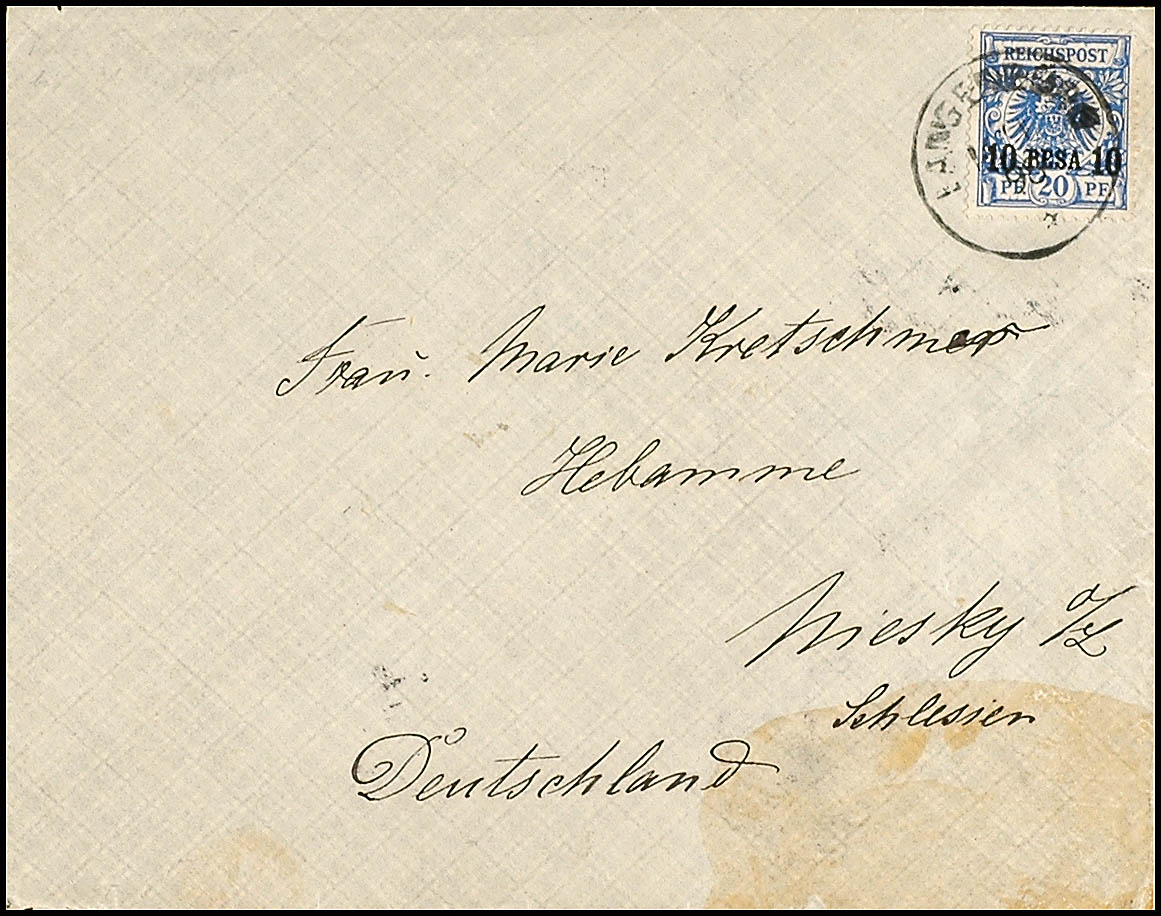 REICHSPOST
10 PESA 10
PF 20 PF
Frau Marie Kretschmer
Hebamme
Niesky O/L
Schlesien
Deutschland